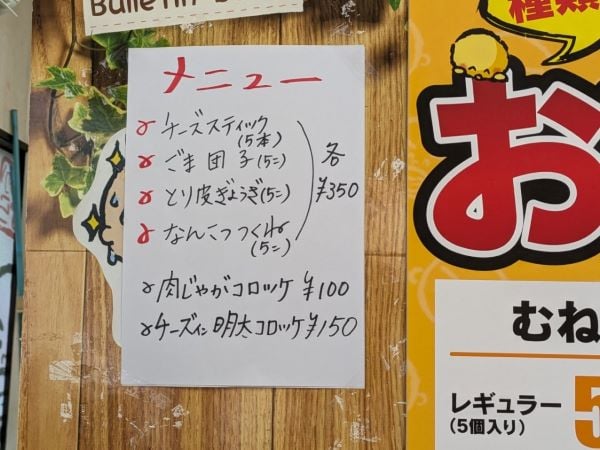 メニュー
チーズスティック
(5本)
ごま団子(5コ)
とり皮ぎょうざ(5コ)
なんこつつくね
(5コ)
各
¥350
肉じゃがコロッケ ¥100
チーズin明太コロッケ¥150
種類
お
むね
レギュラー
(5個入り)
5